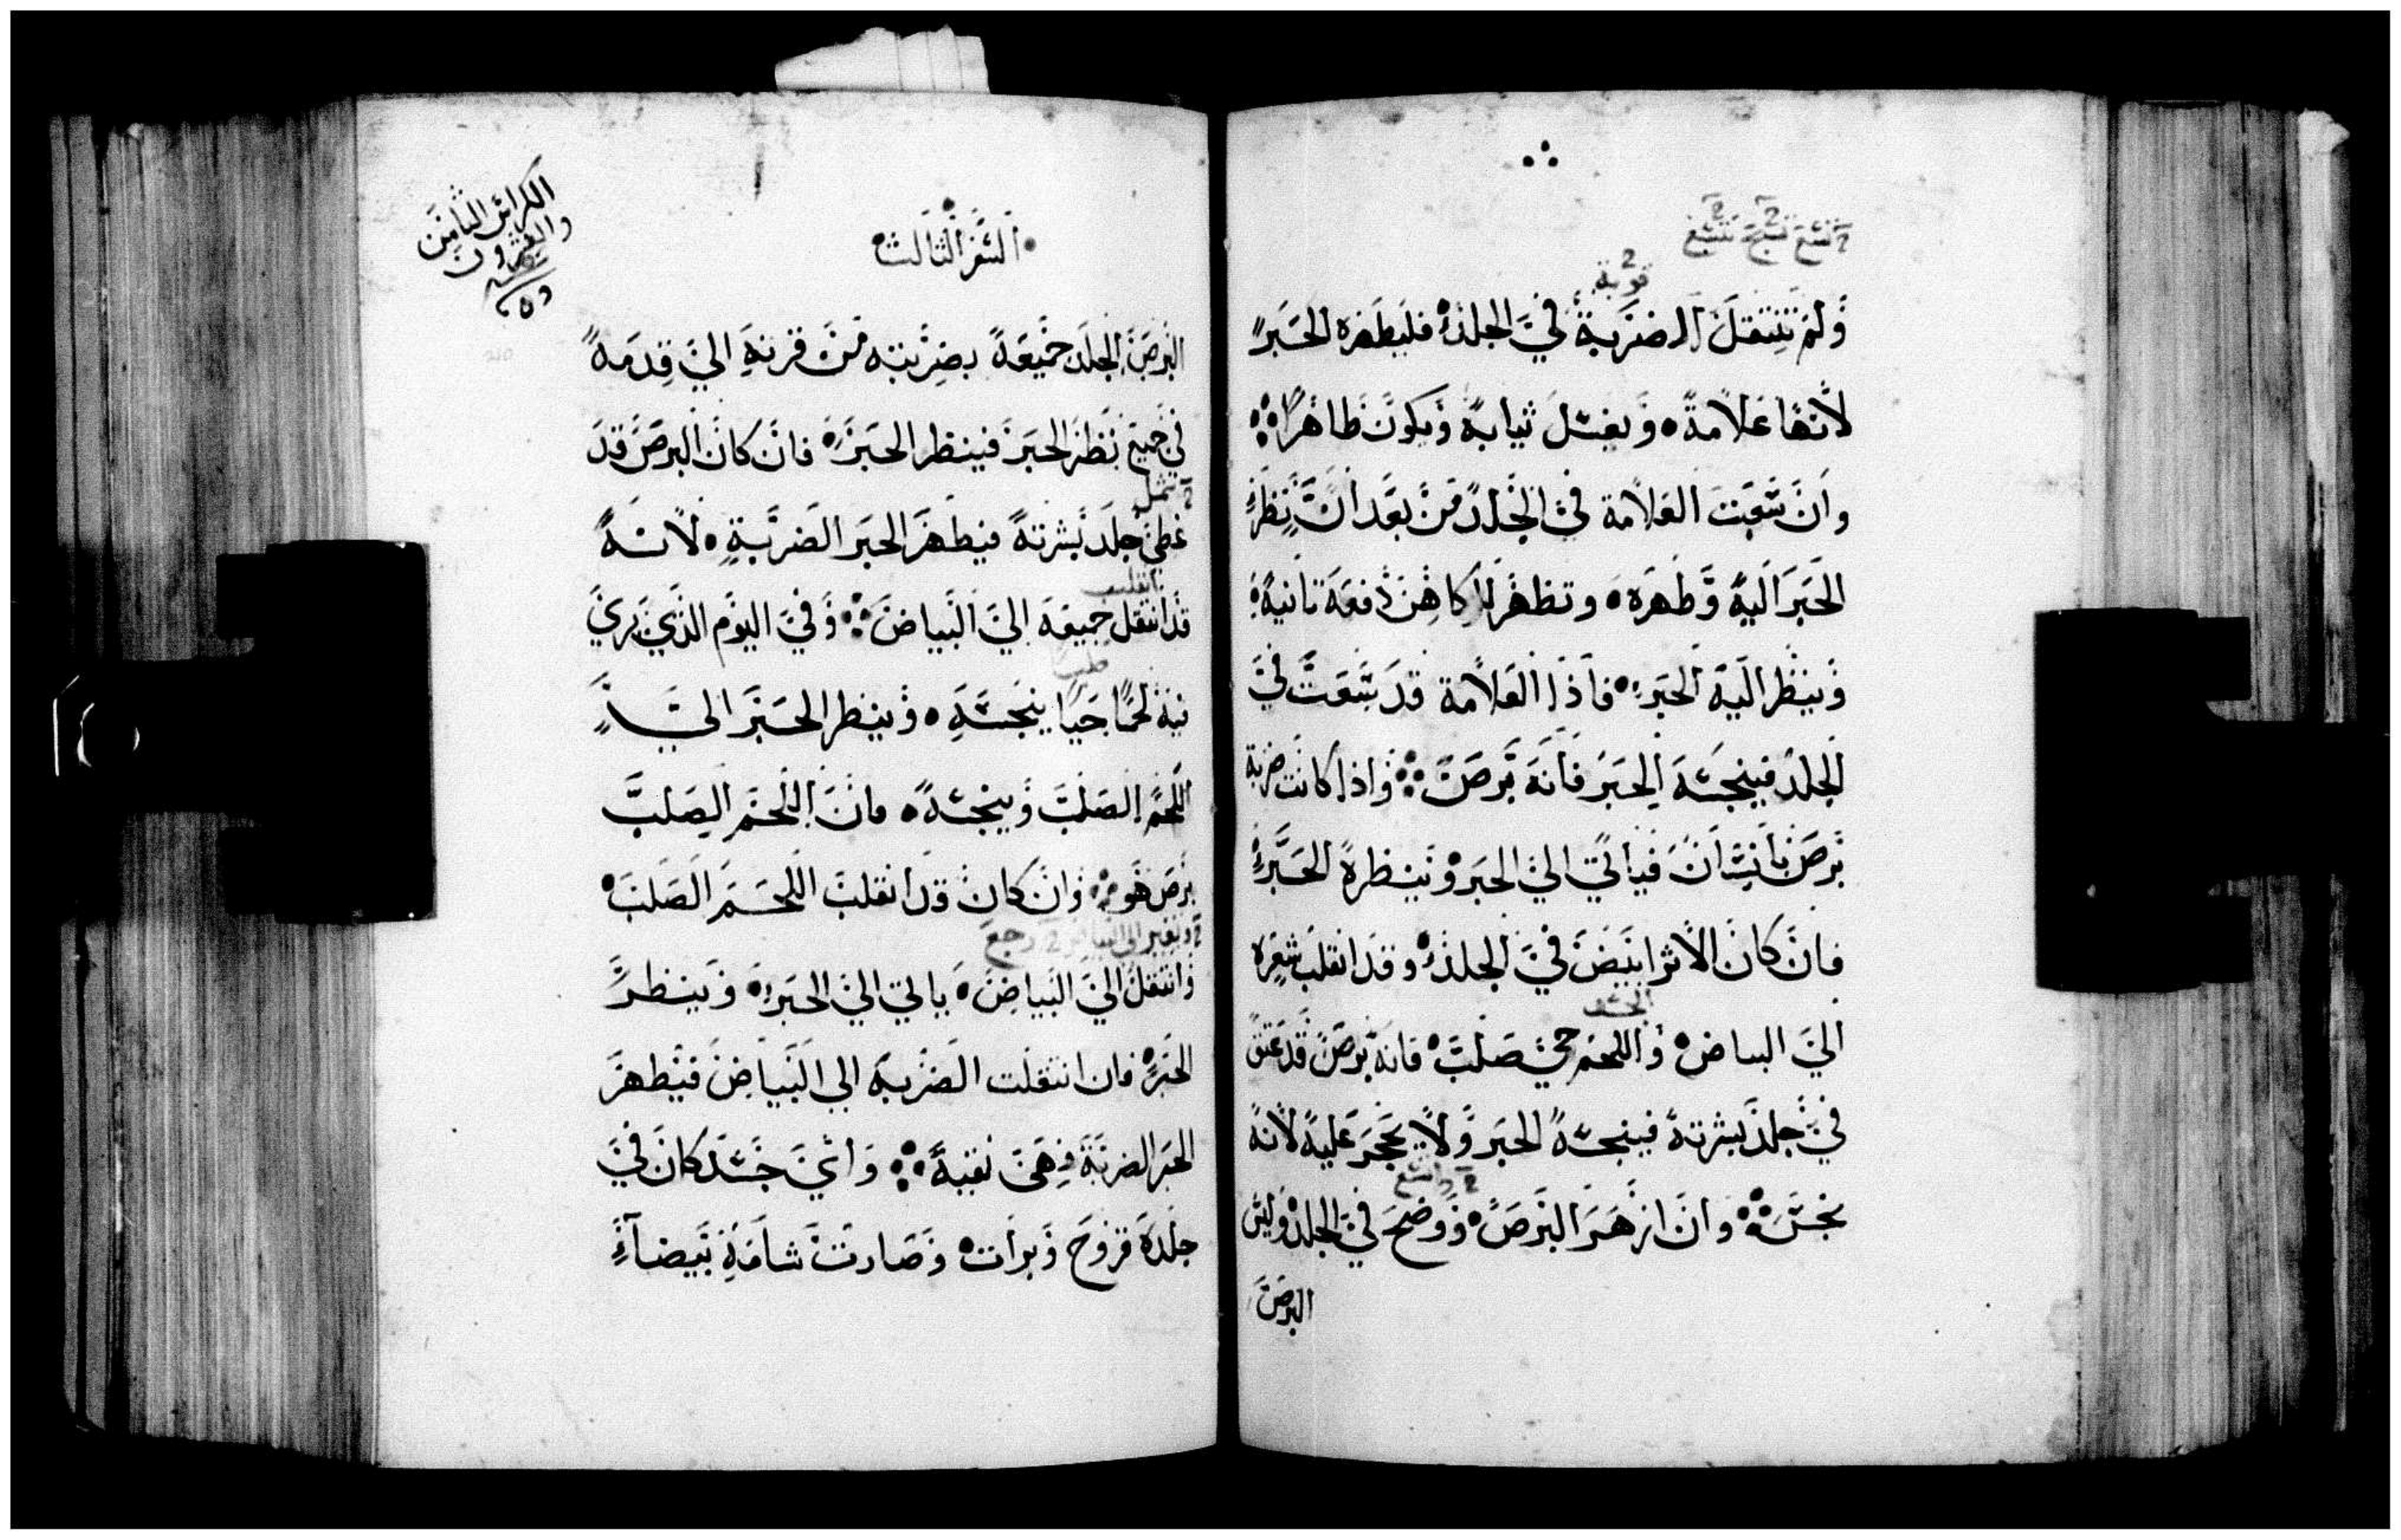 ولم تنتقل الضربة في الجلد فليطهره الحبر
لانها علامة ويغسل ثيابه ويكون طاهرا
وان سعت العلامة في الجلد من بعد ان نظر
الحبر اليه وطهره وتظهر للكاهن دفعة ثانية
وينظر اليه الحبر فاذا العلامة قد سعت في
الجلد فينجسه الحبر فانه برص واذا كانت ضربة
برص بانسان فياتي الي الحبر وينظره الحبر
فان كان الاثر ابيض في الجلد وقد انقلب شعره
الي البياض واللحم حي صلب فانه برص قد عتق
في جلد بشرته فينجسه الحبر ولا يحجر عليه لانه
نجس وان ازهر البرص ووضح في الجلد وليس
البرص
السفر الثالث
الكراس الثامن
والعشرون
البرص الجلد جميعه بضربته من قرنه الي قدمه
في جميع نظر الحبر فينظر الحبر فان كان البرص قد
غطي جلد بشرته فيطهر الحبر الضربة لانه
قد انتقل جميعه الي البياض وفي اليوم الذي يري
فيه لحما حيا ينجسه وينظر الحبر الي
اللحم الصلب وينجسه فان اللحم الصلب
برص هو وان كان قد انقلب اللحم الصلب
وانتقل الي البياض ياتي الي الحبر وينظر
الحبر فان انتقلت الضربة الي البياض فيطهر
الحبر الضربة فهي نقية واي جسد كان في
جلده قروح وبرات وصارت شامة بيضآء